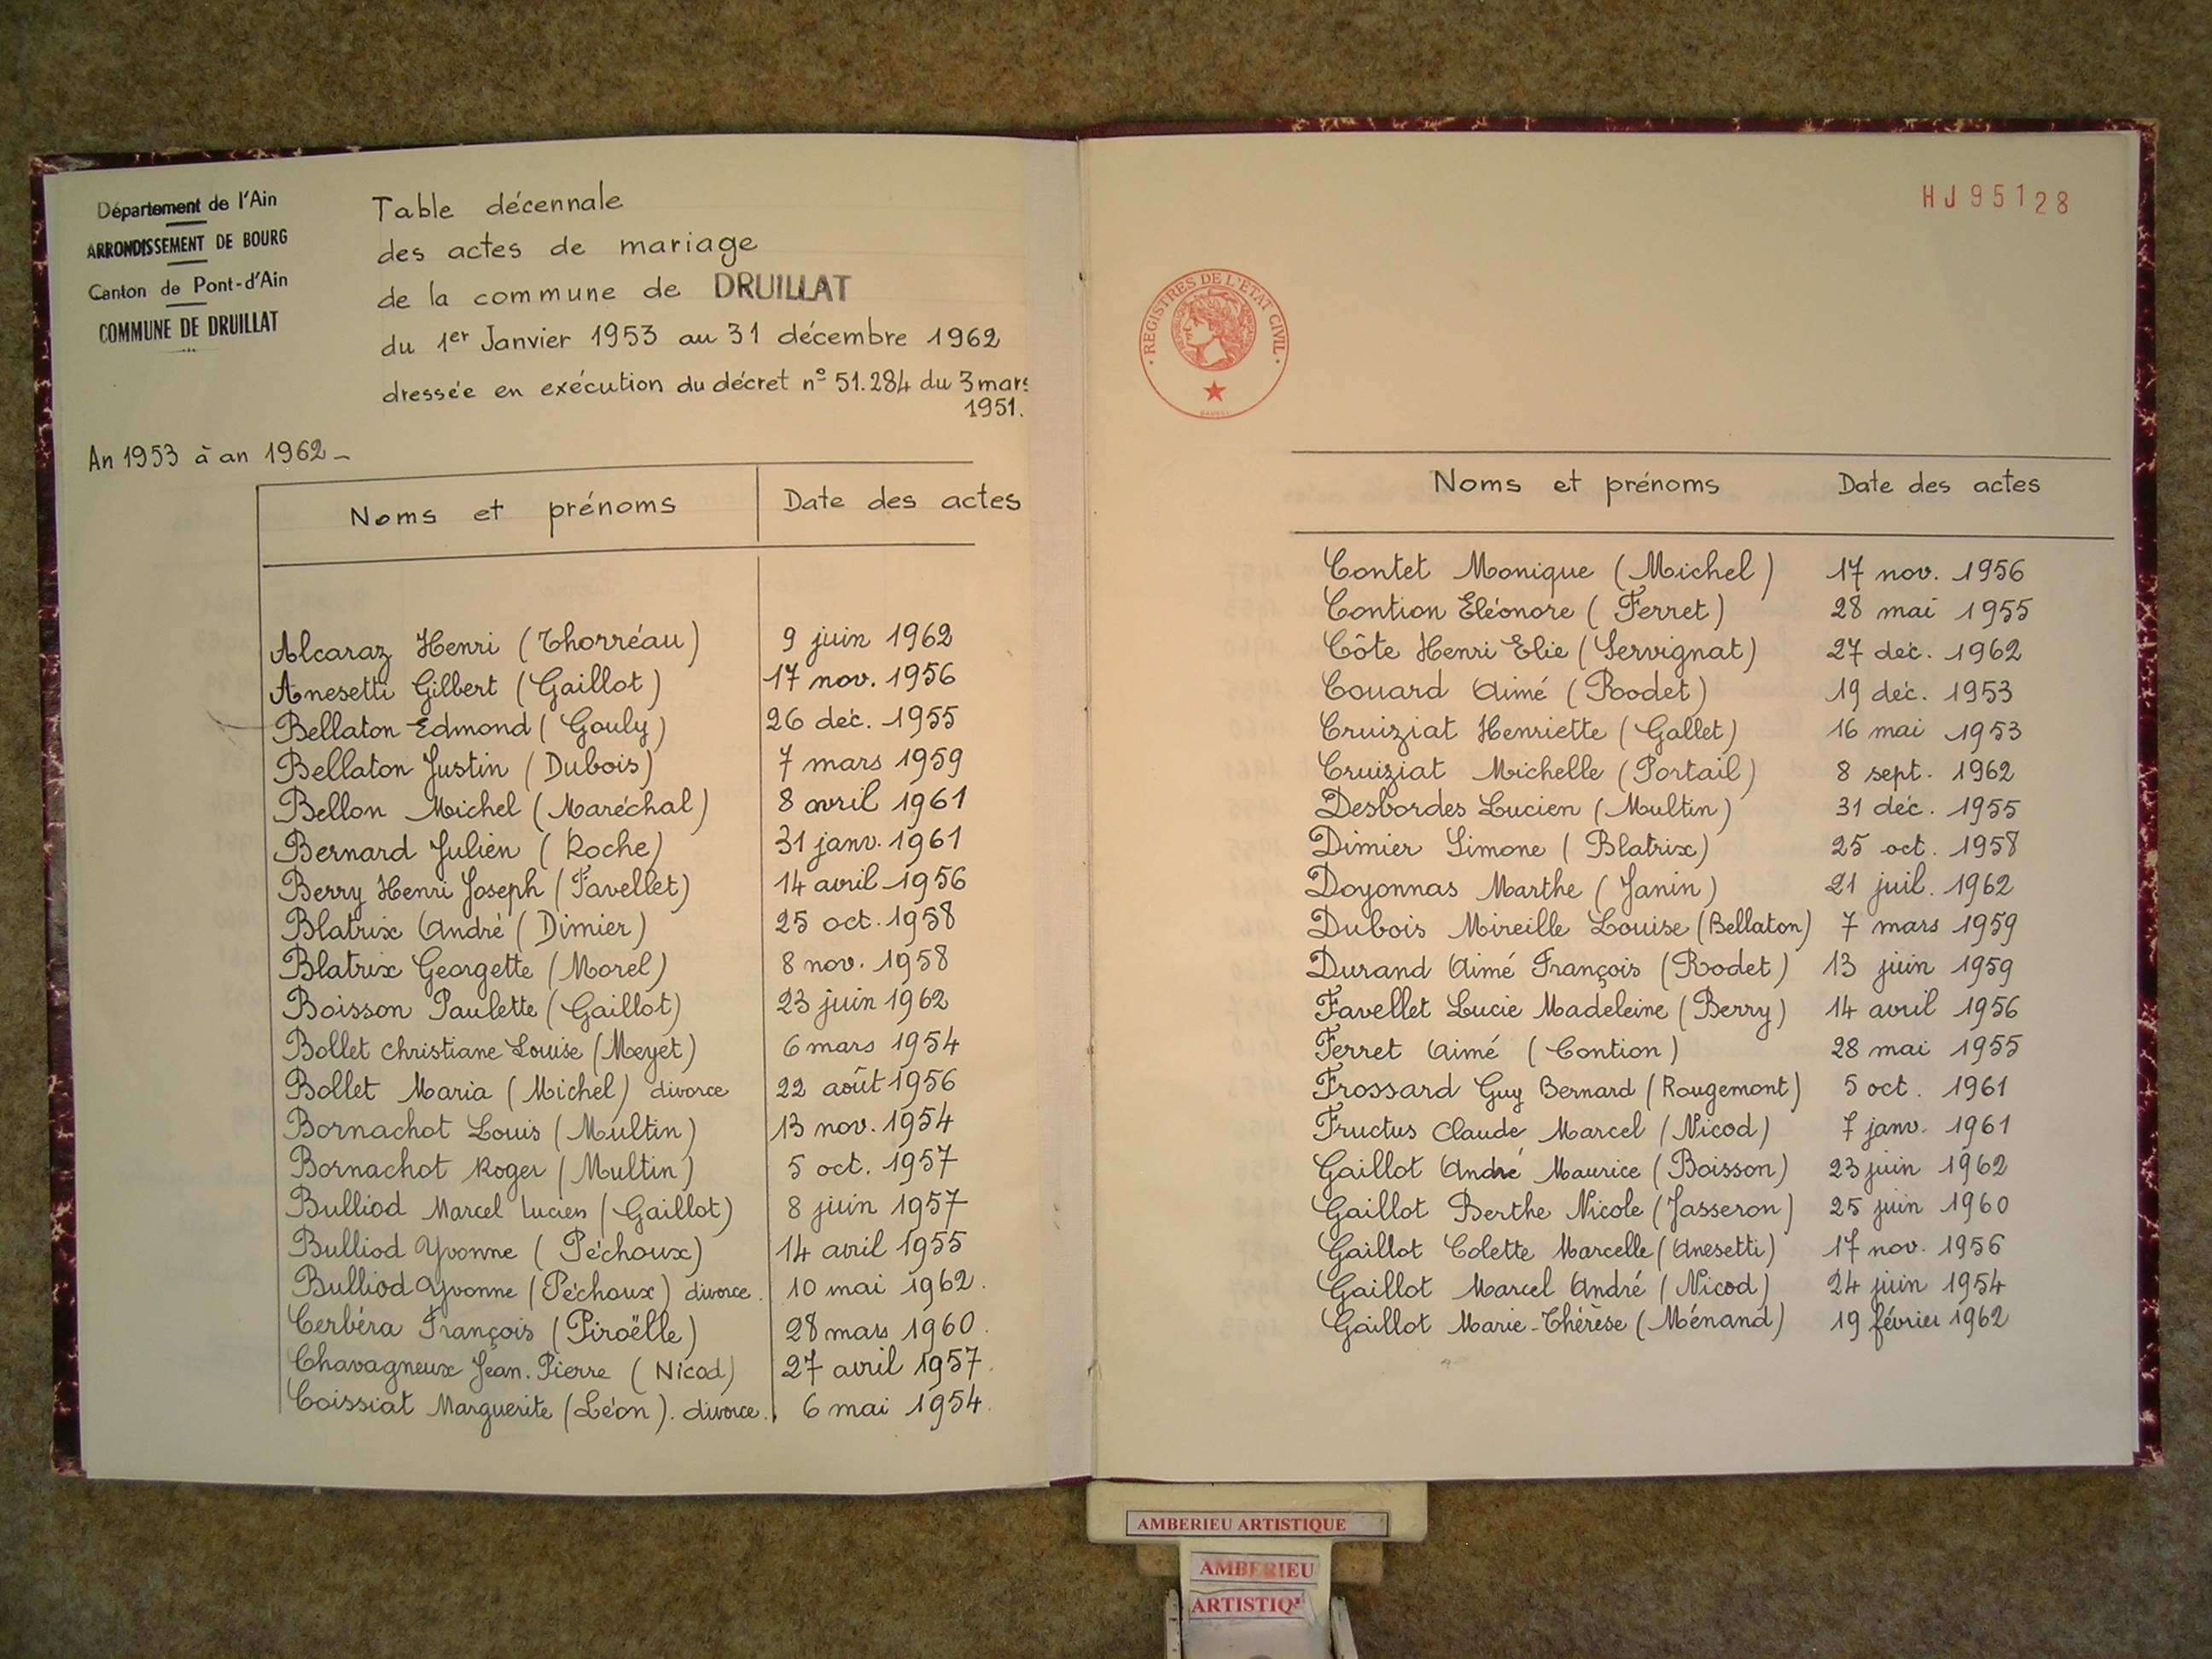 Département de l'Ain
ARRONDISSEMENT DE BOURG
Canton de Pont-d'Ain
COMMUNE DE DRUILLAT
Table décennale
des actes de mariage
de la commune de DRUILLAT
du 1er Janvier 1953 au 31 décembre 1962
dressée en exécution du décret n° 51.284 du 3 mars
1951.
An 1953 à an 1962 -
Noms et prénoms Date des actes
Alcaraz Henri (Thorréau) 9 juin 1962
Anesetti Gilbert (Gaillot) 17 nov. 1956
Bellaton Edmond (Gouly) 26 déc. 1955
Bellaton Justin (Dubois) 7 mars 1959
Bellon Michel (Maréchal) 8 avril 1961
Bernard Julien (Roche) 31 janv. 1961
Berry Henri Joseph (Favellet) 14 avril 1956
Blatrix André (Dimier) 25 oct. 1958
Blatrix Georgette (Morel) 8 nov. 1958
Boisson Paulette (Gaillot) 23 juin 1962
Bollet Christiane Louise (Meyet) 6 mars 1954
Bollet Maria (Michel) divorce 22 août 1956
Bornachot Louis (Multin) 13 nov. 1954
Bornachot Roger (Multin) 5 oct. 1957
Bulliod Marcel Lucien (Gaillot) 8 juin 1957
Bulliod Yvonne (Péchoux) 14 avril 1955
Bulliod Yvonne (Péchoux) divorce. 10 mai 1962.
Cerbéra François (Piroëlle) 28 mars 1960.
Chavagneux Jean-Pierre (Nicod) 27 avril 1957.
Coissiat Marguerite (Léon). divorce. 6 mai 1954.
HJ95128
REGISTRES DE L'ETAT CIVIL
Noms et prénoms Date des actes
Contet Monique (Michel) 17 nov. 1956
Contion Eléonore (Ferret) 28 mai 1955
Côte Henri Elie (Servignat) 27 déc. 1962
Couard Aimé (Rodet) 19 déc. 1953
Cruiziat Henriette (Gallet) 16 mai 1953
Cruiziat Michelle (Portail) 8 sept. 1962
Desbordes Lucien (Multin) 31 déc. 1955
Dimier Simone (Blatrix) 25 oct. 1958
Doyonnas Marthe (Janin) 21 juil. 1962
Dubois Mireille Louise (Bellaton) 7 mars 1959
Durand Aimé François (Rodet) 13 juin 1959
Favellet Lucie Madeleine (Berry) 14 avril 1956
Ferret Aimé (Contion) 28 mai 1955
Frossard Guy Bernard (Rougemont) 5 oct. 1961
Fructus Claude Marcel (Nicod) 7 janv. 1961
Gaillot André Maurice (Boisson) 23 juin 1962
Gaillot Berthe Nicole (Jasseron) 25 juin 1960
Gaillot Colette Marcelle (Anesetti) 17 nov. 1956
Gaillot Marcel André (Nicod) 24 juin 1954
Gaillot Marie-Thérèse (Ménand) 19 février 1962
AMBERIEU ARTISTIQUE
AMBERIEU
ARTISTIQ